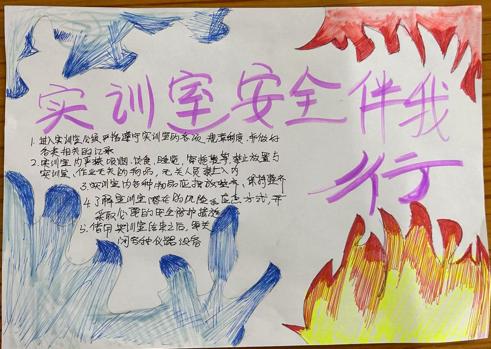 实训室安全伴我
行
1. 进入实训室必须严格遵守实训室的各项规章制度,并做好
各类相关的记录
2. 实训室内严禁吸烟、饮食、睡觉、穿拖鞋等,禁止放置与
实训室、作业无关的物品,无关人员禁止入内
3. 实训室内各种物品应摆放整齐,保持整齐
4. 了解实训室潜在的风险和应急方式,并
采取必要的安全防护措施
5. 使用实训室结束之后,需关
闭各种仪器设备